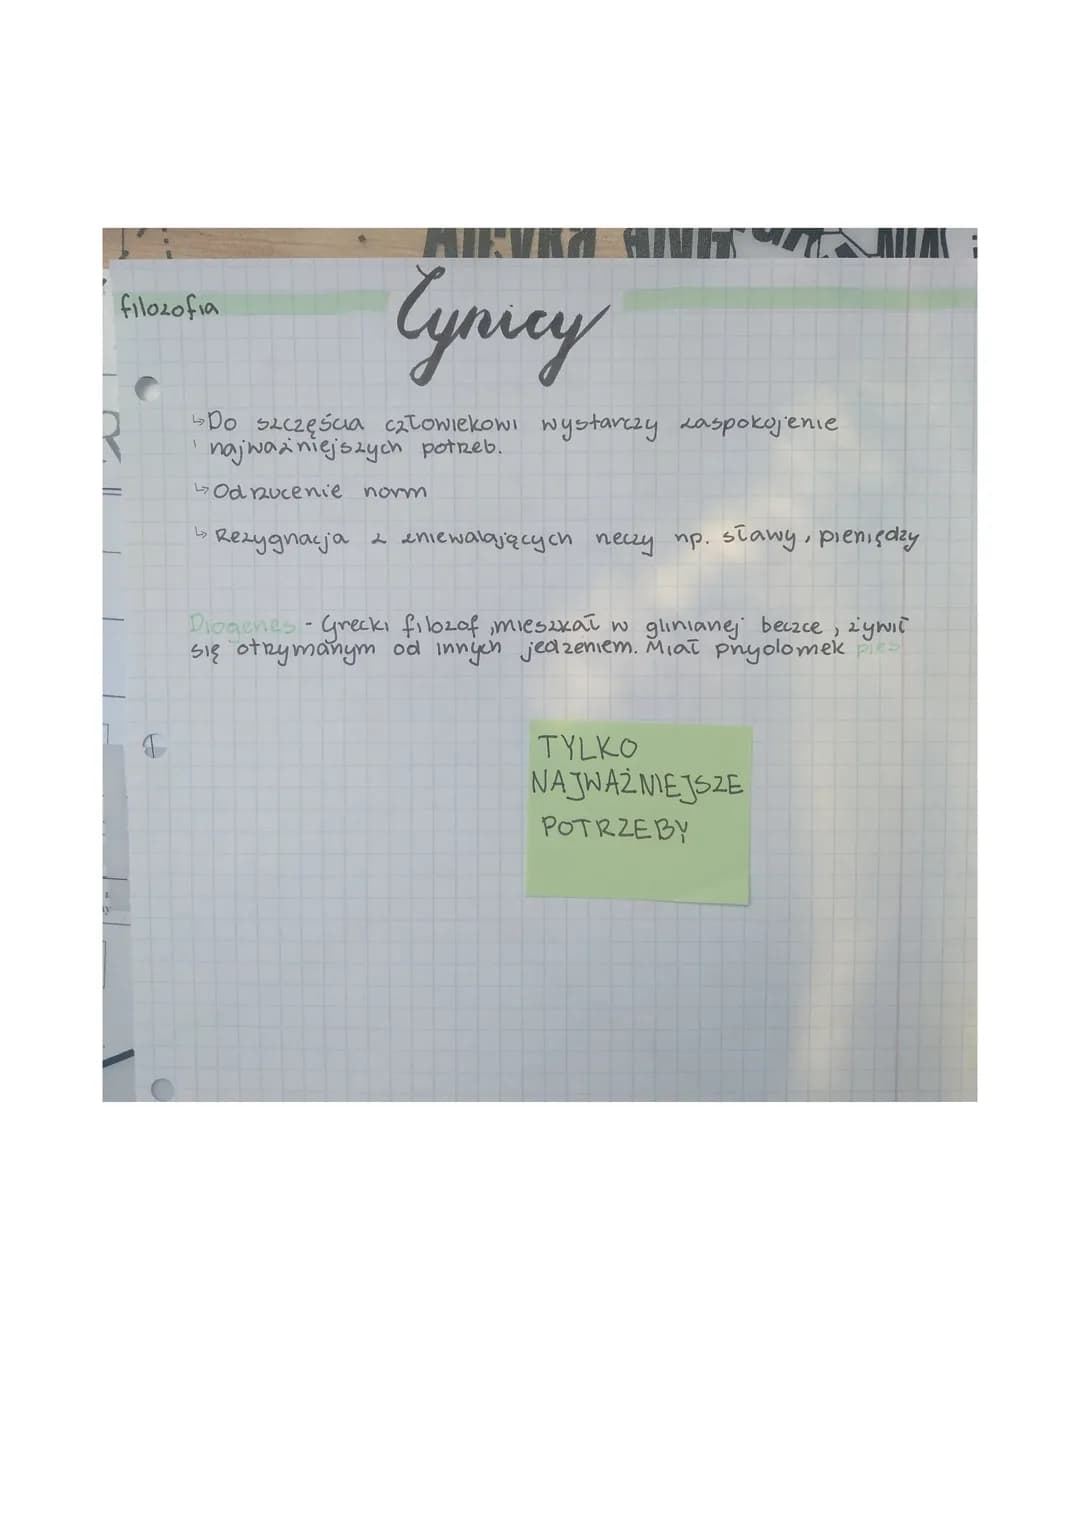 filozofia
Cynicy
↳Do szczęścia człowiekowi wystarczy zaspokojenie
najważniejszych potrzeb.
↳Odrzucenie norm
↳Rezygnacja z zniewalających rzeczy np. sławy, pieniędzy
Diogenes - Grecki filozof, mieszkał w glinianej beczce, żywił
się otrzymanym od innych jedzeniem. Miał przydomek pies
TYLKO
NAJWAŻNIEJSZE
POTRZEBY